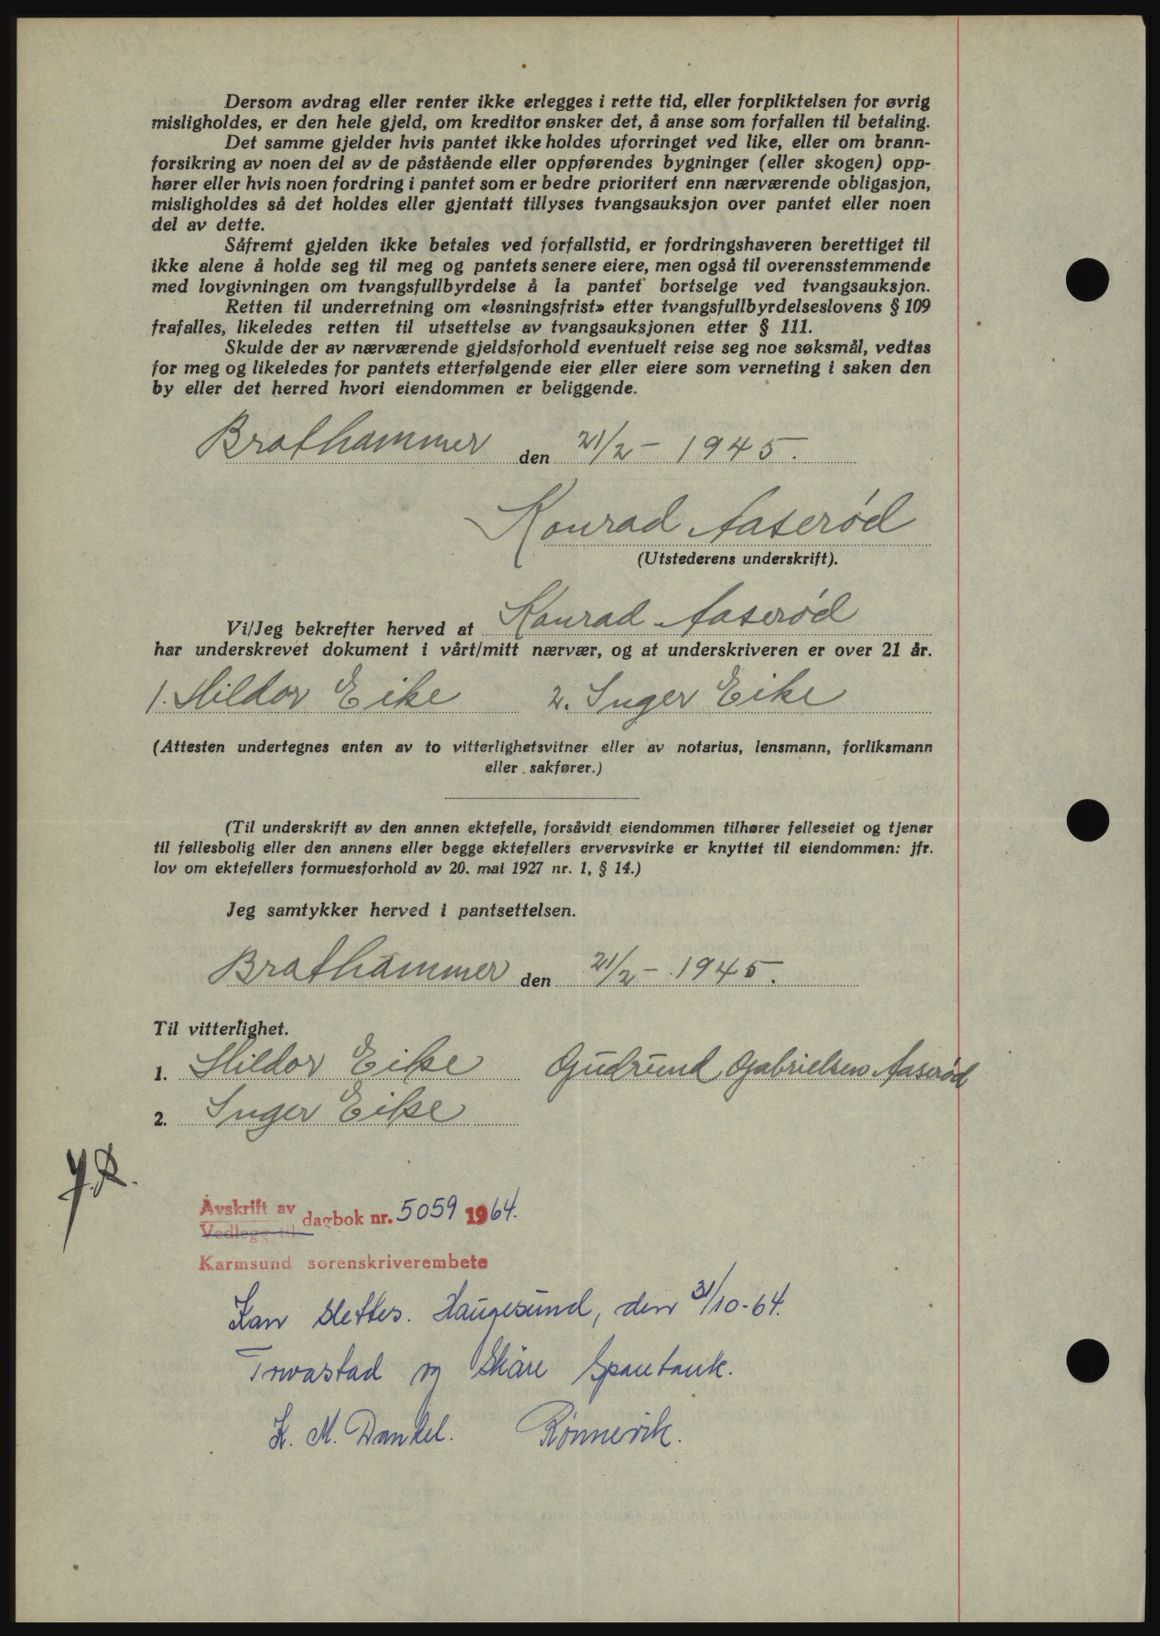 Dersom avdrag eller renter ikke erlegges i rette tid, eller forpliktelsen for øvrig
misligholdes, er den hele gjeld, om kreditor ønsker det, å anse som forfallen til betaling.
Det samme gjelder hvis pantet ikke holdes uforringet ved like, eller om brann-
forsikring av noen del av de påstående eller oppførendes bygninger (eller skogen) opp-
hører eller hvis noen fordring i pantet som er bedre prioritert enn nærværende obligasjon,
misligholdes så det holdes eller gjentatt tillyses tvangsauksjon over pantet eller noen
del av dette.
Såfremt gjelden ikke betales ved forfallstid, er fordringshaveren berettiget til
ikke alene å holde seg til meg og pantets senere eiere, men også til overensstemmende
med lovgivningen om tvangsfullbyrdelse å la pantet bortselge ved tvangsauksjon.
Retten til underretning om «løsningsfrist» etter tvangsfullbyrdelseslovens § 109
frafalles, likeledes retten til utsettelse av tvangsauksjonen etter § 111.
Skulde der av nærværende gjeldsforhold eventuelt reise seg noe søksmål, vedtas
for meg og likeledes for pantets etterfølgende eier eller eiere som verneting i saken den
by eller det herred hvori eiendommen er beliggende.
Brathammer den 21/2 - 1945.
Konrad Aaserød
(Utstederens underskrift).
Vi/Jeg bekrefter herved at Konrad Aaserød
har underskrevet dokument i vårt/mitt nærvær, og at underskriveren er over 21 år.
1. Hildor Eike 2. Inger Eike
(Attesten undertegnes enten av to vitterlighetsvitner eller av notarius, lensmann, forliksmann
eller sakfører.)
(Til underskrift av den annen ektefelle, forsåvidt eiendommen tilhører felleseiet og tjener
til fellesbolig eller den annens eller begge ektefellers ervervsvirke er knyttet til eiendommen: jfr.
lov om ektefellers formuesforhold av 20. mai 1927 nr. 1, § 14.)
Jeg samtykker herved i pantsettelsen.
Brathammer den 21/2 - 1945.
Til vitterlighet.
1. Hildor Eike Gudrund Gabrielsen Aaserød
2. Inger Eike
Avskrift av
Vedlegg til
dagbok nr. 5059 1964.
Karmsund sorenskriverembete
Kan slettes. Haugesund, den 31/10-64.
Torvastad og Skåre Sparebank.
K. M. Dankel. Rønnevik.